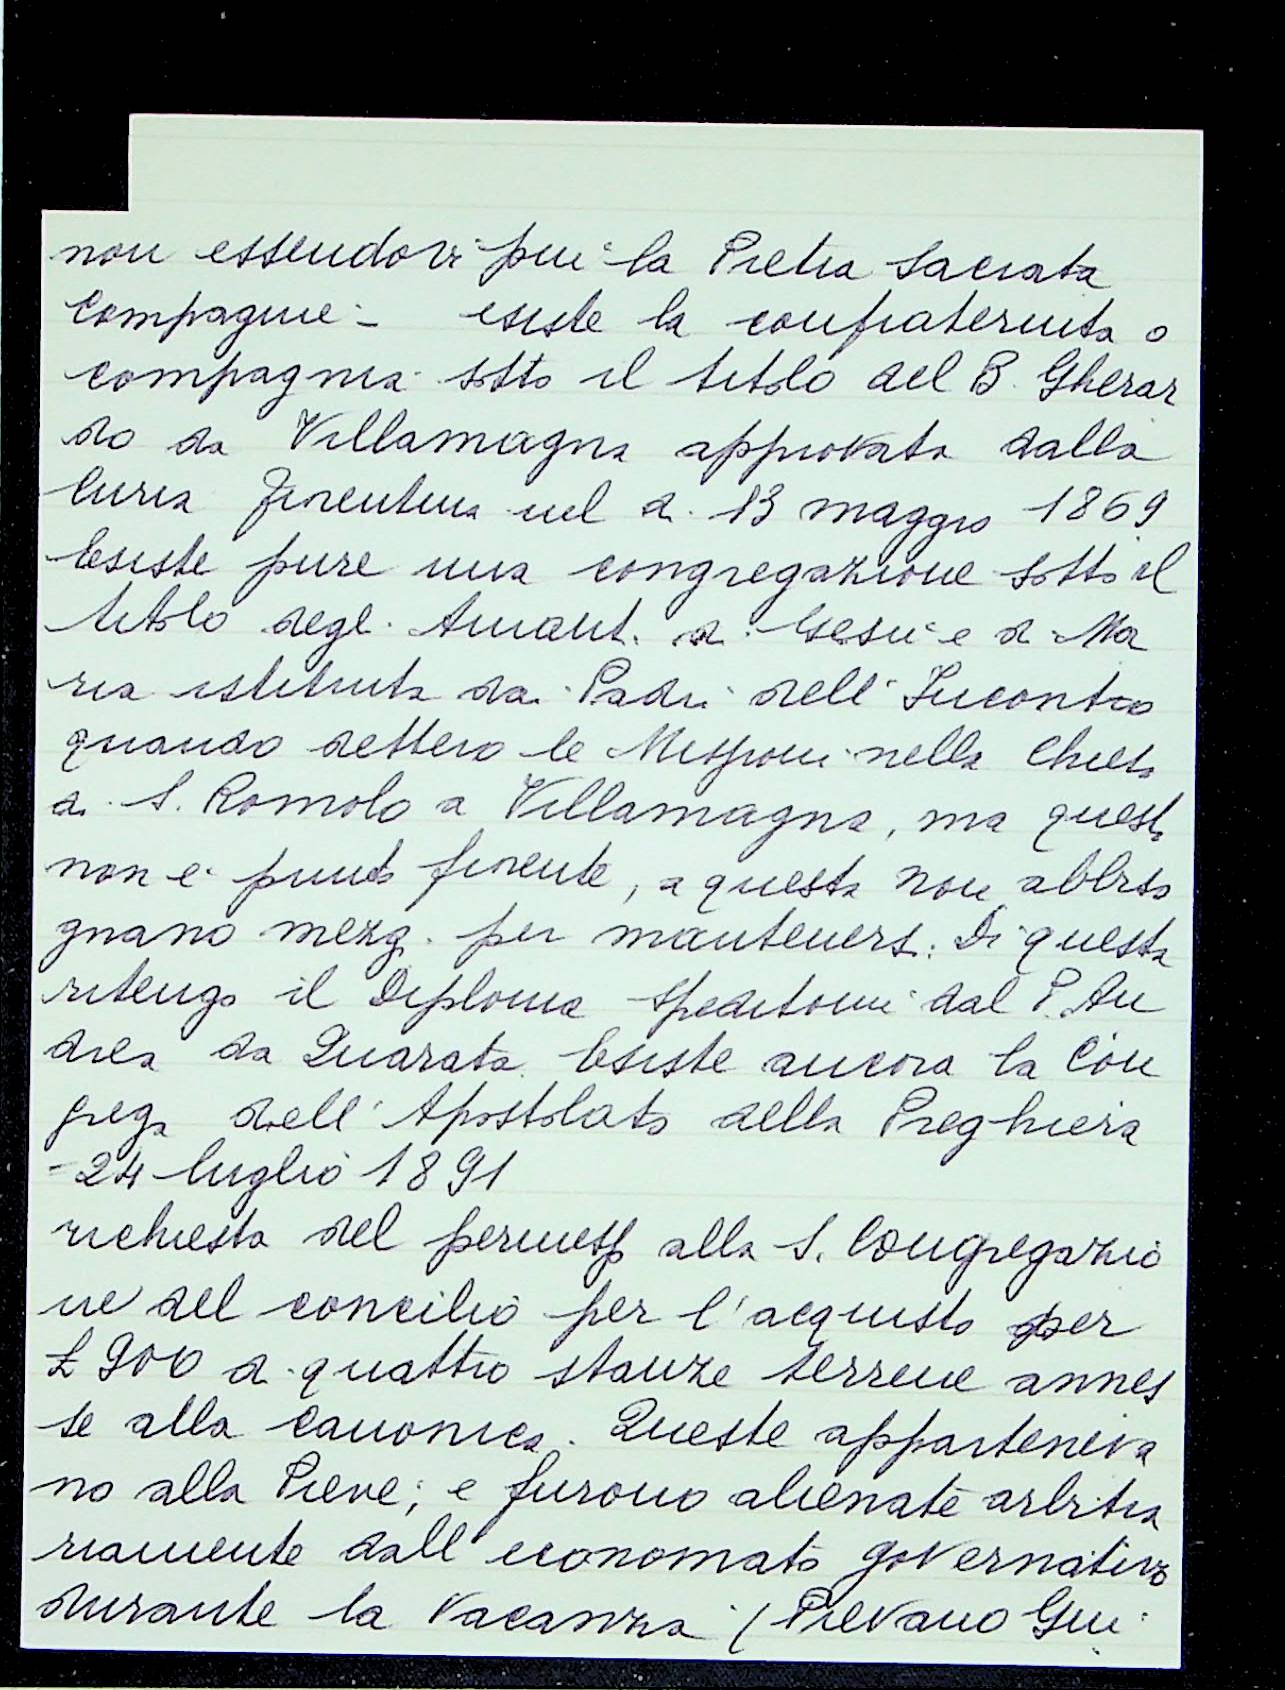 non essendovi più la Pietra Sacrata
Compagnie - esiste la confraternita o
compagnia sotto il titolo del B. Gherar
do da Villamagna approvata dalla
Curia fiorentina nel dì 13 maggio 1869
Esiste pure una congregazione sotto il
titolo degli Amanti di Gesù e di Ma
ria istituita dai Padri dell'Incontro
quando dettero le Missioni nella Chiesa
di S. Romolo a Villamagna, ma questa
non è punto fiorente, a questa non abbiso
gnano mezzi per mantenersi. Di questa
ritengo il Diploma speditomi dal P. An
drea da Quarata. Esiste ancora la Con
grega dell'Apostolato della Preghiera
- 24 luglio 1891
richiesta del permesso alla S. Congregazio
ne del concilio per l'acquisto per
£ 900 di quattro stanze terrene annes
se alla canonica. Queste apparteneva
no alla Pieve; e furono alienate arbitra
riamente dall'economato governativo
durante la vacanza (Pievano Gui